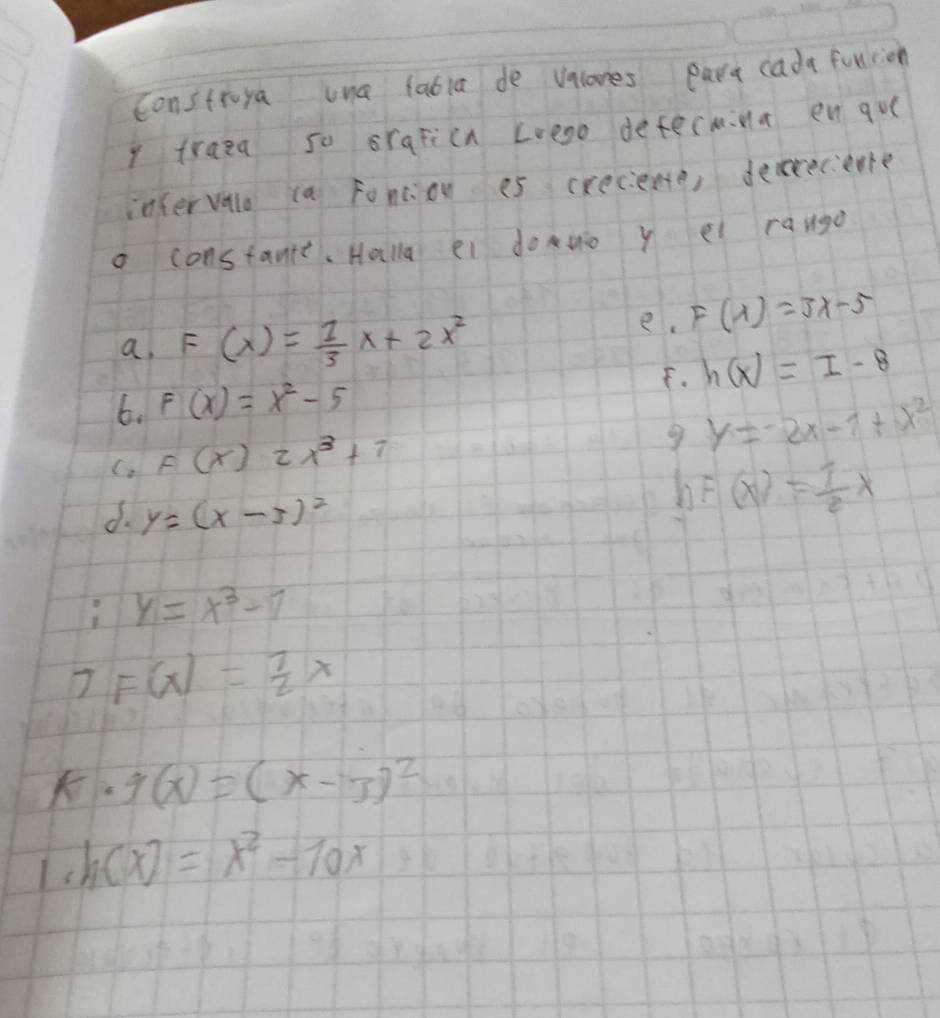 construya una tabla de valores para cada funcion
y traza su grafica Luego determina en que
intervalo la Funcion es creciente, decreciente
o constante. Halla el dominio y el rango
a. F(x) = 1/3 x + 2x²
b. F(x) = x² - 5
c. F(x) 2x³ + 1
d. y = (x - 3)²
e. F(x) = 3x - 5
F. h(x) = I - 8
g y = -2x - 1 + x²
h F(x) = 1/2 x
i y = x³ - 1
J F(x) = 1/2 x
K. g(x) = (x - 3)²
l. h(x) = x² - 10x